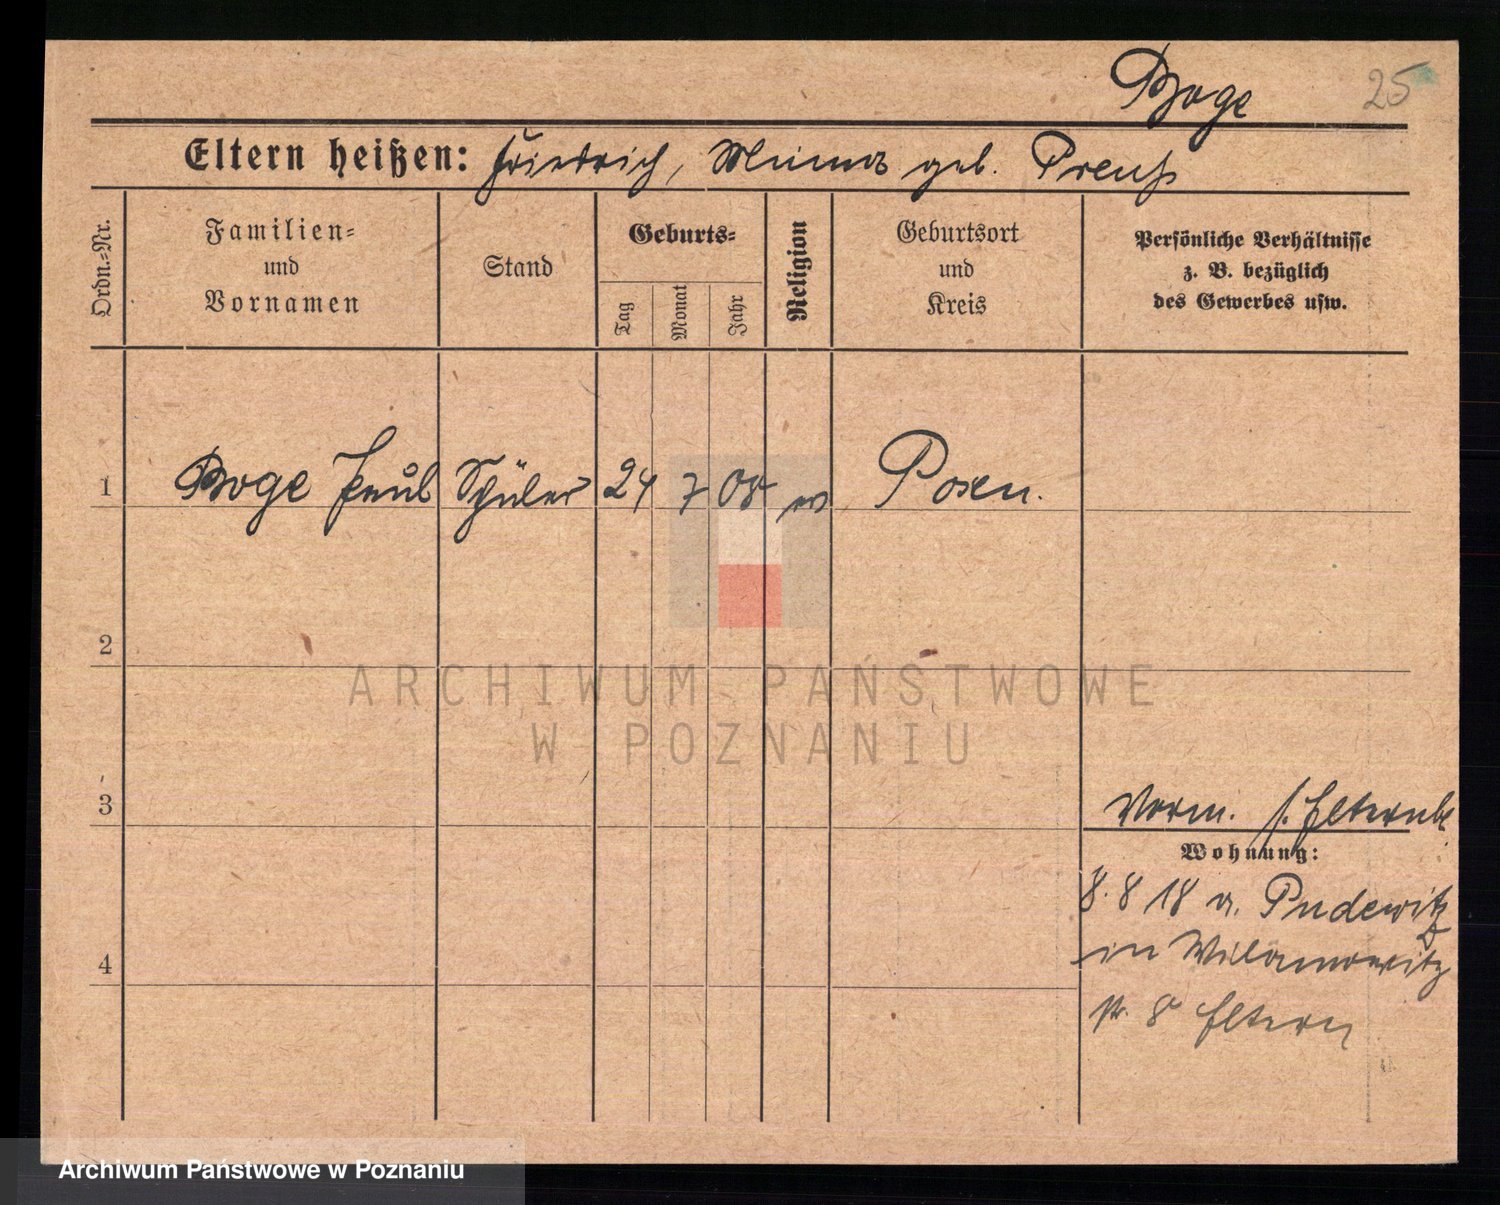 Boge 25
Eltern heißen: Friedrich, Minna geb. Preuß
Ordn.-Nr.
Familien- und Vornamen
Stand
Geburts-
Tag
Monat
Jahr
Religion
Geburtsort und Kreis
Persönliche Verhältnisse
z. B. bezüglich
des Gewerbes usw.
1 Boge Paul Schüler 24 7 08 ev Posen.
2
ARCHIWUM PAŃSTWOWE
W POZNANIU
3
Vorm. s. Elternbl
Wohnung:
8. 8 18 v. Pudewitz
4
in Willamowitz
str. 8 Eltern
Archiwum Państwowe w Poznaniu